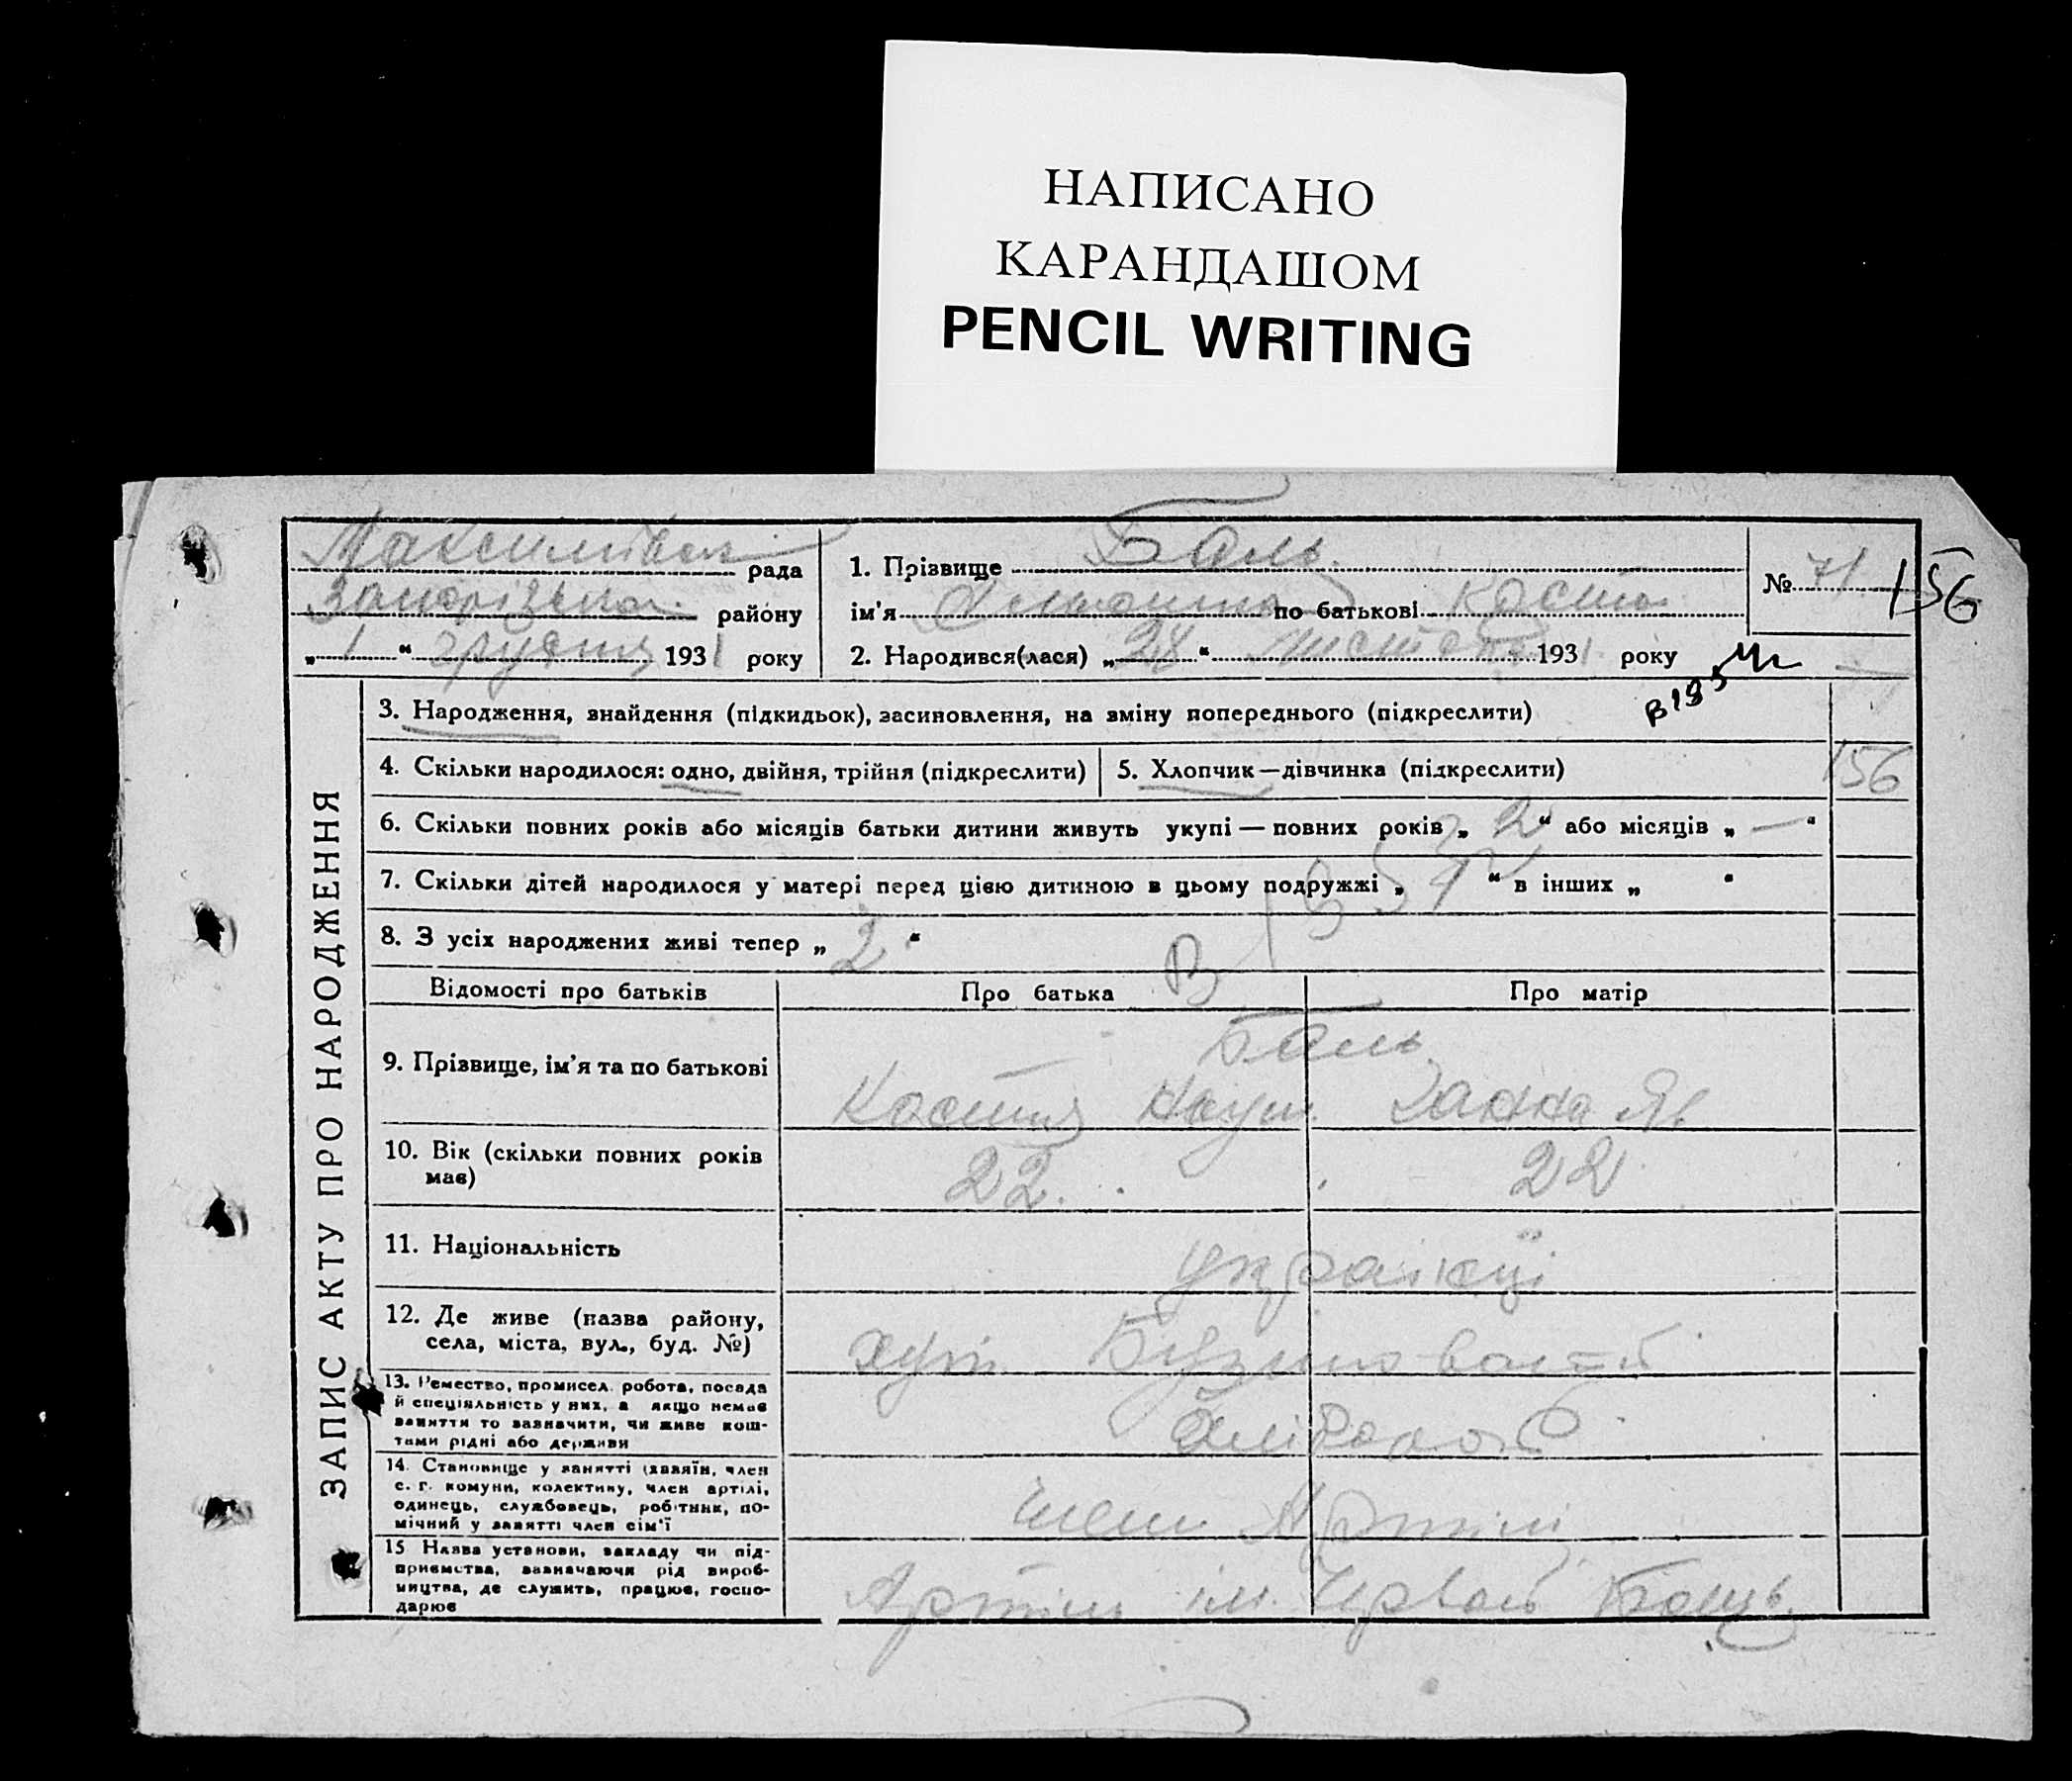 НАПИСАНО
КАРАНДАШОМ
PENCIL WRITING
рада
району
„ 1 “ грудня 1931 року
1. Прізвище Баль
ім'я по батькові Костя
2. Народився(лася) „ 28 “ 1931 року
№ 71
156
ЗАПИС АКТУ ПРО НАРОДЖЕННЯ
3. Народження, знайдення (підкидьок), засиновлення, на зміну попереднього (підкреслити)
4. Скільки народилося: одно, двійня, трійня (підкреслити)
5. Хлопчик—дівчинка (підкреслити)
156
6. Скільки повних років або місяців батьки дитини живуть укупі — повних років „ 2 “ або місяців „ — “
7. Скільки дітей народилося у матері перед цією дитиною в цьому подружжі „ 1 “ в інших „ “
8. З усіх народжених живі тепер „ 2 “
Відомості про батьків
Про батька
Про матір
9. Прізвище, ім'я та по батькові
Баль
Костя Наум
Ганна Як
10. Вік (скільки повних років
має)
22.
22
11. Національність
українці
12. Де живе (назва району,
села, міста, вул., буд. №)
хут.
13. Ремество, промисел. робота, посада
й спеціяльність у них, а якщо немає
заняття то зазначити, чи живе кош-
тами рідні або держави
Хлібороб
14. Становище у занятті (хазяїн, член
с. г. комуни, колективу, член артілі,
одинець, службовець, робітник, по-
мічний у занятті член сім'ї
член Артілі
15 Назва установи, закладу чи під-
приємства, зазначаючи рід вироб-
ництва, де служить, працює, госпо-
дарює
Артіль ім.